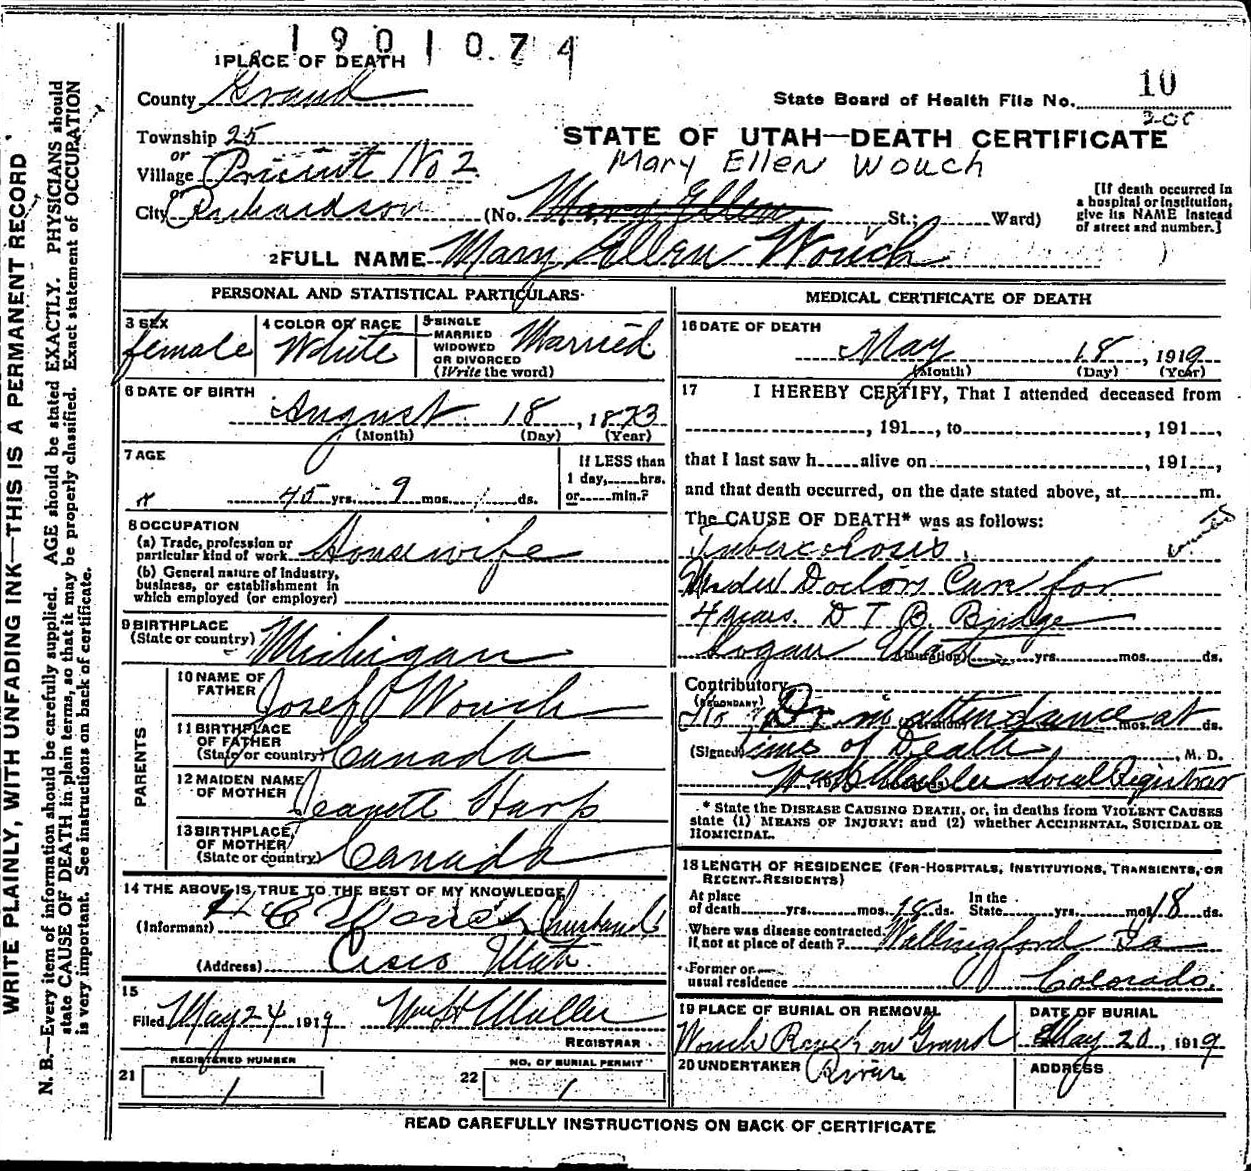 1901074
1 PLACE OF DEATH
County Grand
State Board of Health File No. 10
Township 25
STATE OF UTAH—DEATH CERTIFICATE
or
Village Precinct No 2
Mary Ellen Wouch
or
City Richardson (No. Mary Ellen St.; Ward)
[If death occurred in
a hospital or institution,
give its NAME instead
of street and number.]
2 FULL NAME Mary Ellen Wouch
PERSONAL AND STATISTICAL PARTICULARS
3 SEX
female
4 COLOR OR RACE
White
5 SINGLE
MARRIED
WIDOWED
OR DIVORCED
(Write the word)
Married
6 DATE OF BIRTH
August 18, 1873
(Month) (Day) (Year)
7 AGE
45 yrs. 9 mos. ds.
If LESS than
1 day,.....hrs.
or.....min.?
8 OCCUPATION
(a) Trade, profession or
particular kind of work Housewife
(b) General nature of industry,
business, or establishment in
which employed (or employer)
9 BIRTHPLACE
(State or country) Michigan
PARENTS
10 NAME OF
FATHER Josef Wouch
11 BIRTHPLACE
OF FATHER
(State or country) Canada
12 MAIDEN NAME
OF MOTHER Jeanett Harp
13 BIRTHPLACE
OF MOTHER
(State or country) Canada
14 THE ABOVE IS TRUE TO THE BEST OF MY KNOWLEDGE
(Informant) H C Wouch (husband)
(Address) Cisco Utah
15
Filed May 24 1919 Wm H Muller
REGISTRAR
21 REGISTERED NUMBER
1
22 NO. OF BURIAL PERMIT
1
MEDICAL CERTIFICATE OF DEATH
16 DATE OF DEATH
May 18, 1919
(Month) (Day) (Year)
17 I HEREBY CERTIFY, That I attended deceased from
, 191 , to , 191 ,
that I last saw h alive on , 191 ,
and that death occurred, on the date stated above, at m.
The CAUSE OF DEATH* was as follows:
Tubercolosis.
Under Doctors Care for
4 years. D T B. Bridge
Logan Utah (Duration) yrs. mos. ds.
Contributory
(SECONDARY)
No Dr. in attendance at (Duration) mos. ds.
(Signed) time of Death, M. D.
Local Registrar
* State the DISEASE CAUSING DEATH, or, in deaths from VIOLENT CAUSES
state (1) MEANS OF INJURY; and (2) whether ACCIDENTAL, SUICIDAL OR
HOMICIDAL.
18 LENGTH OF RESIDENCE (FOR HOSPITALS, INSTITUTIONS, TRANSIENTS, OR
RECENT RESIDENTS)
At place
of death yrs. mos. 18 ds.
In the
State yrs. mos. 18 ds.
Where was disease contracted
if not at place of death? Wallingford Ia
Former or
usual residence Colorado.
19 PLACE OF BURIAL OR REMOVAL
Wouch Ranch on Grand
DATE OF BURIAL
May 20, 1919
20 UNDERTAKER River
ADDRESS
READ CAREFULLY INSTRUCTIONS ON BACK OF CERTIFICATE
WRITE PLAINLY, WITH UNFADING INK—THIS IS A PERMANENT RECORD
N. B.—Every item of information should be carefully supplied. AGE should be stated EXACTLY. PHYSICIANS should
state CAUSE OF DEATH in plain terms, so that it may be properly classified. Exact statement of OCCUPATION
is very important. See instructions on back of certificate.